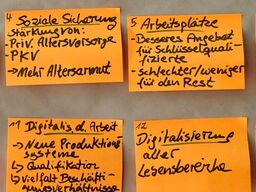 4 Soziale Sicherung
Stärkung von:
- Priv. Altersvorsorge
- PKV
→ Mehr Altersarmut
5 Arbeitsplätze
- Besseres Angebot
für Schlüsselquali-
fizierte
- Schlechter/weniger
für den Rest
11 Digitalis. d. Arbeit
→ Neue Produktions
systeme
↳ Qualifikation
↳ Vielfalt Beschäfti-
gungsverhältnisse
12
Digitalisierung
aller
Lebensbereiche